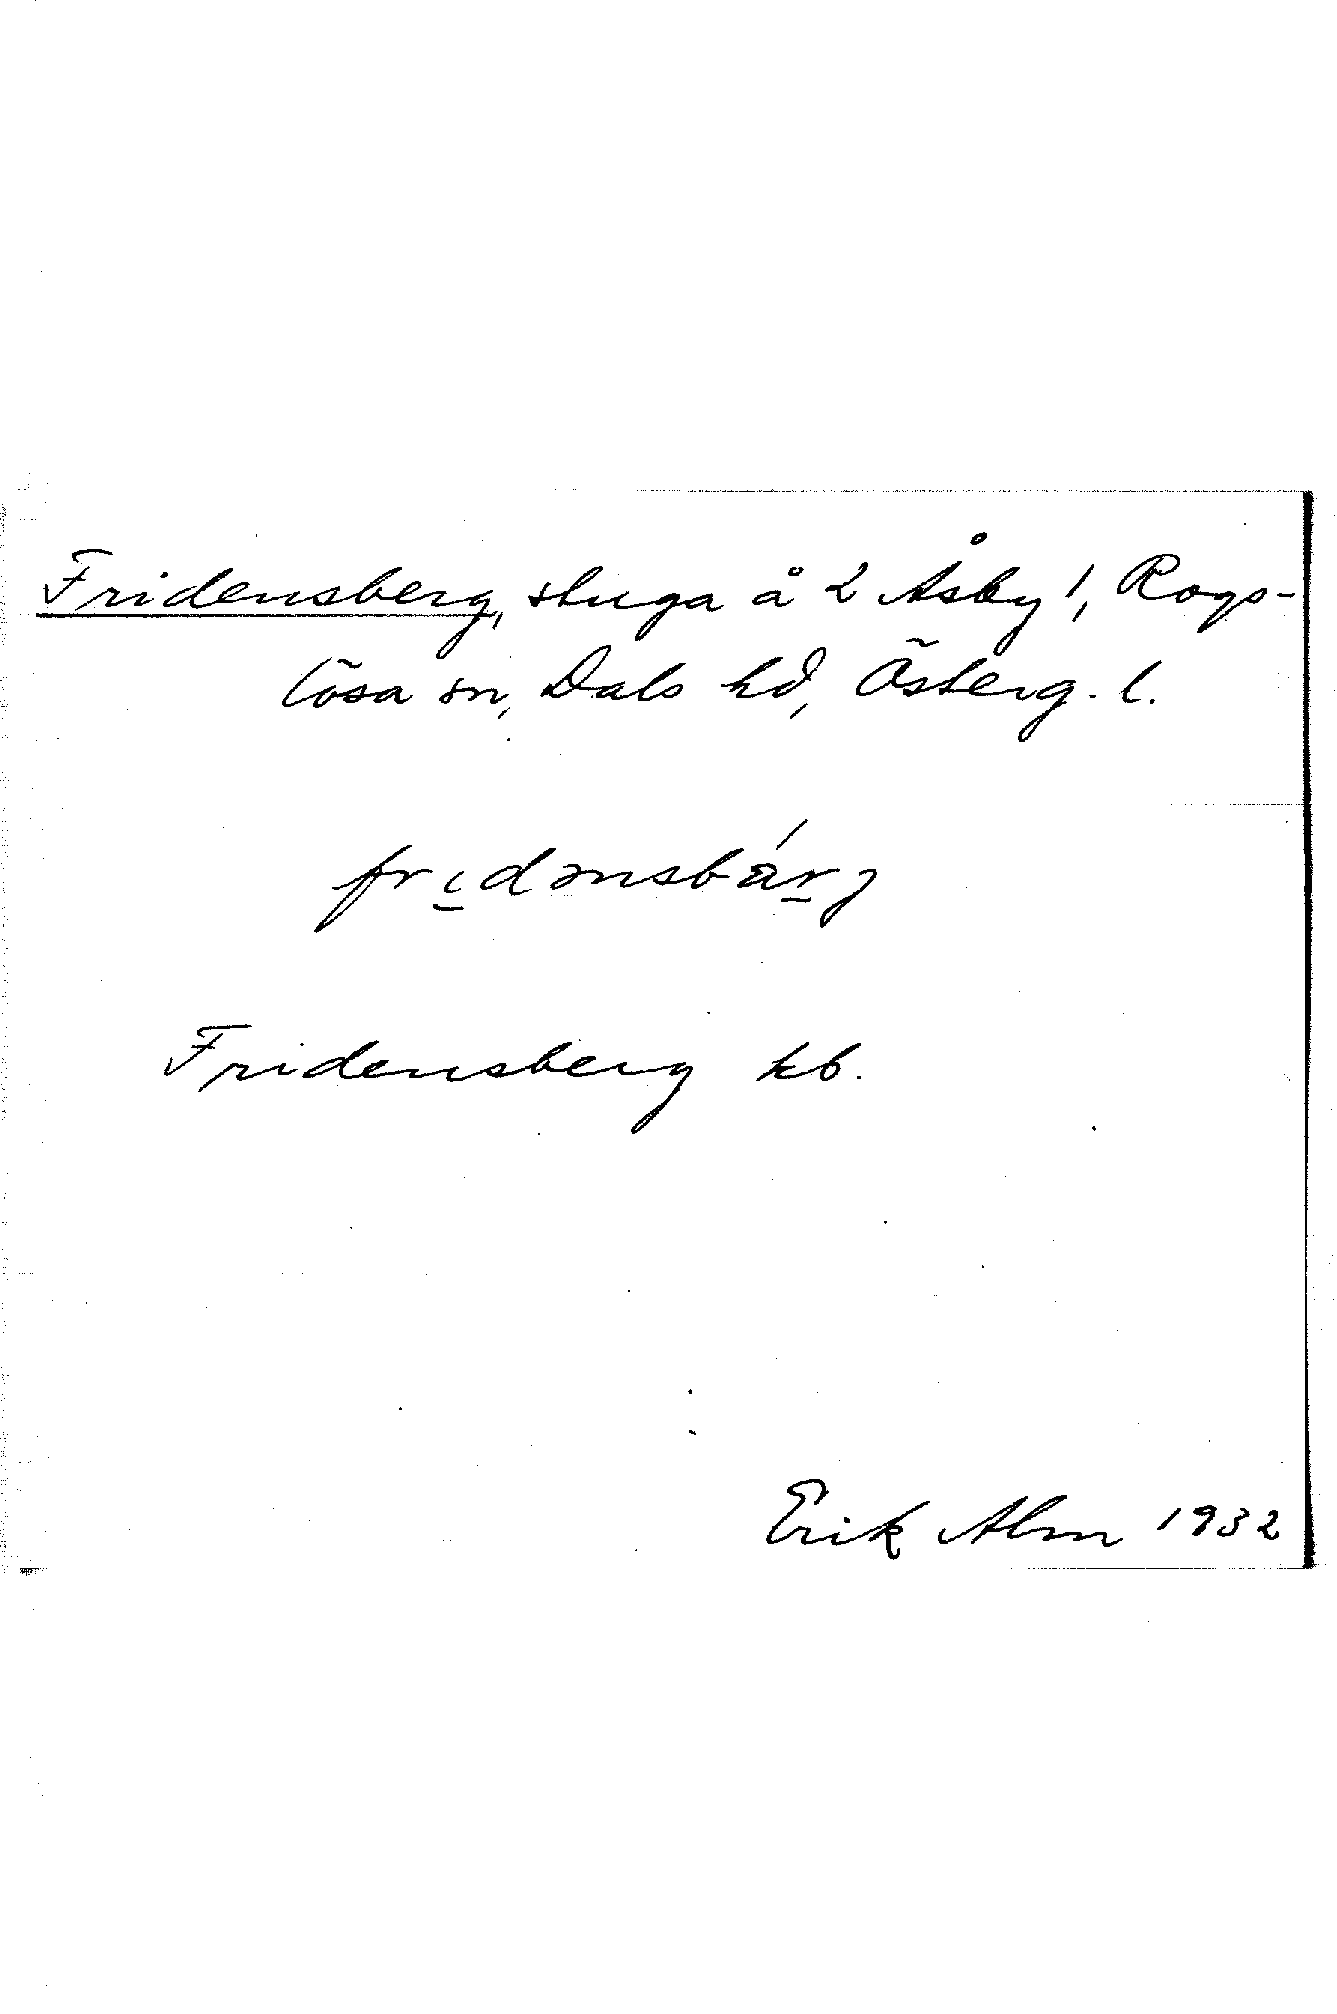 Fridensberg, stuga å 2 Åsby 1, Rogs-
lösa sn, Dals hd, Österg. l.
fridənsbárj
Fridensberg kb.
Erik Alm 1932